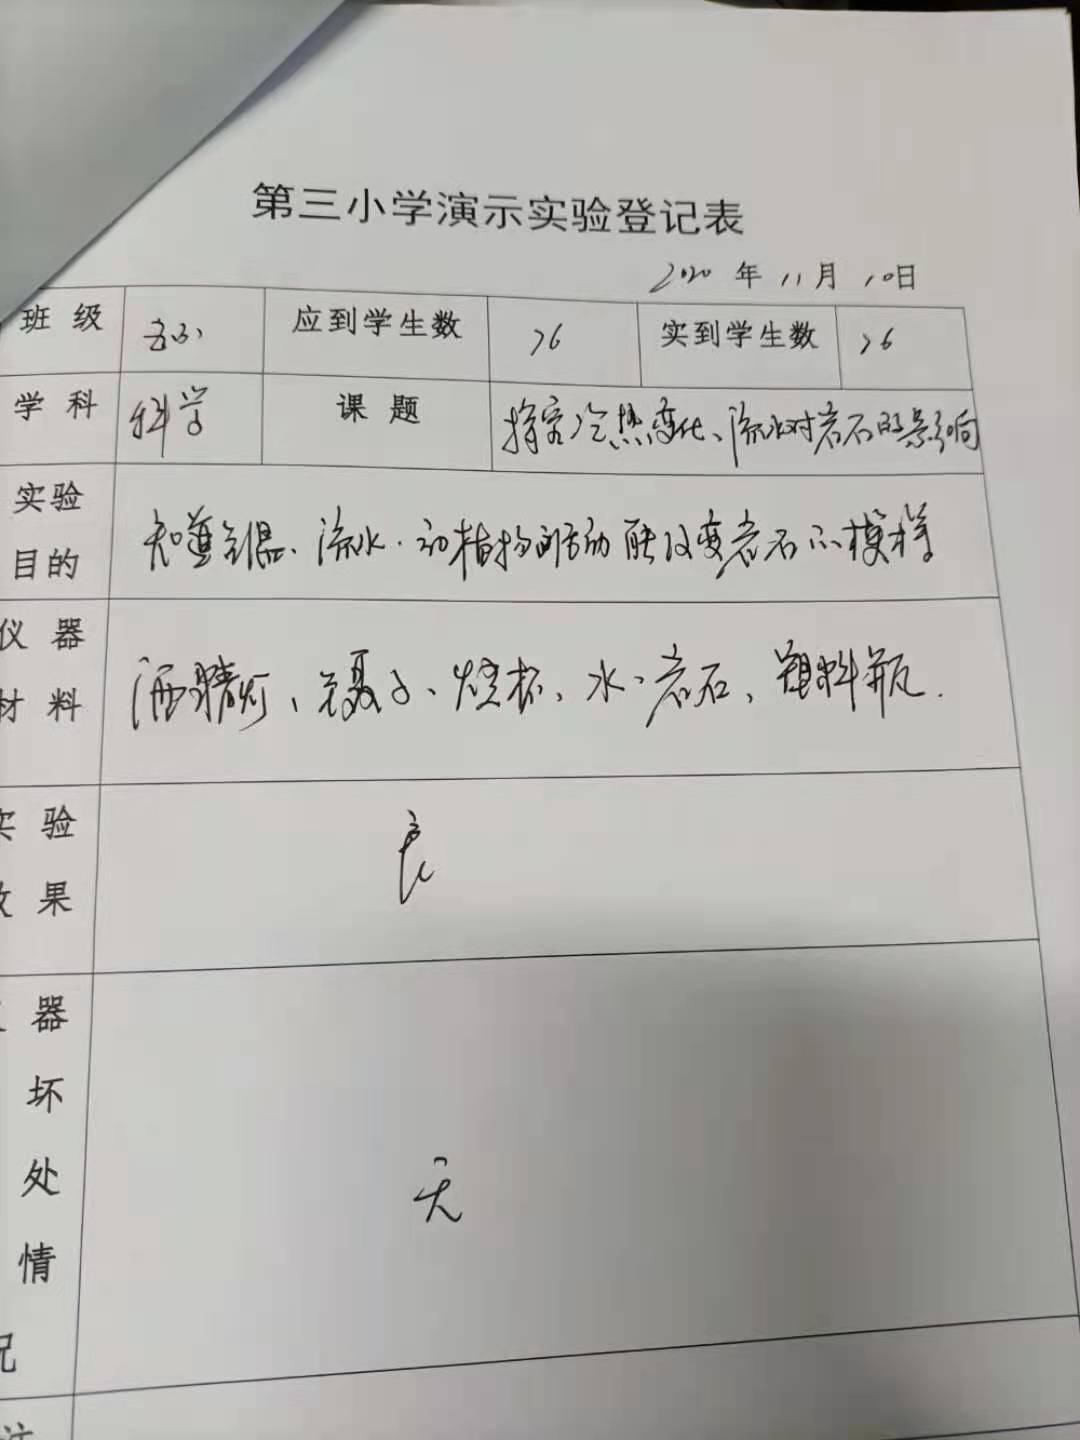 第三小学演示实验登记表
2020 年 11 月 10 日
班级 应到学生数 26 实到学生数 26
学科 科学 课题 探究冷热变化、流水对岩石的影响
实验
目的
知道气温、流水、动植物的活动能改变岩石的模样
仪器
材料
酒精灯、镊子、烧杯、水、岩石、塑料瓶.
实验
效果
良
器
坏
处
情
况
无
注